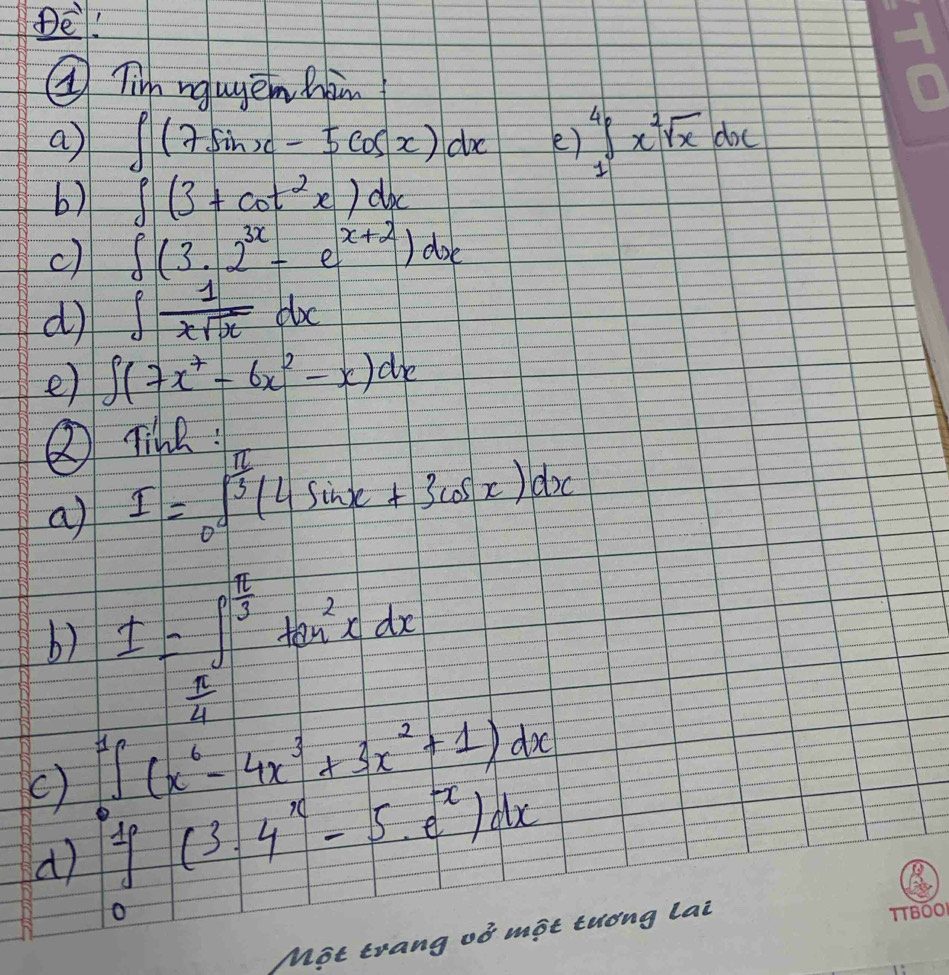 Đề:
① Tìm nguyên hàm:
a) ∫(7 sin x - 5 cos x) dx
e) ₁∫⁴ x²√x dx
b) ∫(3 + cot²x) dx
c) ∫(3.2^{3x} - e^{x+2}) dx
d) ∫ 1/(x√x) dx
e) ∫(7x⁷ - 6x² - x) dx
② Tính:
a) I = ₀∫^{π/3} (4 sin x + 3 cos x) dx
b) I = ∫_{π/4}^{π/3} tan²x dx
c) ₀∫¹ (x⁶ - 4x³ + 3x² + 1) dx
d) ₀∫¹ (3.4^x - 5.e^{-x}) dx
Một trang vở một tương lai
TTBOO
TO